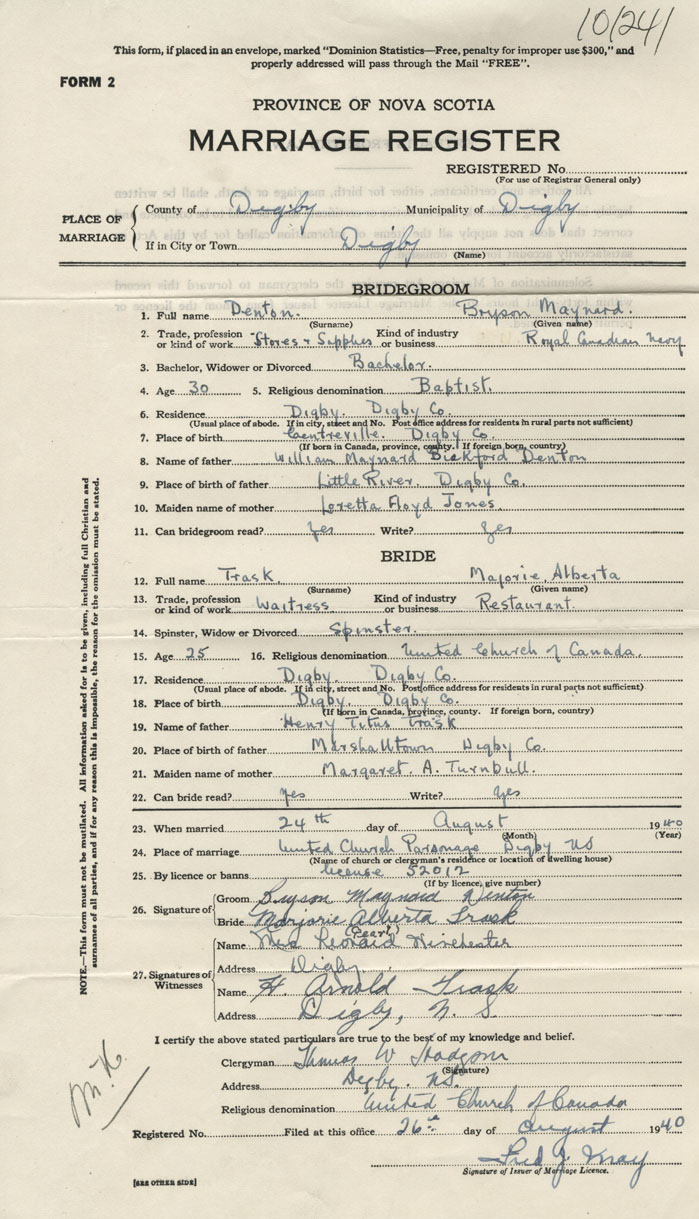 10/241
This form, if placed in an envelope, marked "Dominion Statistics—Free, penalty for improper use $300," and
properly addressed will pass through the Mail "FREE".
FORM 2
PROVINCE OF NOVA SCOTIA
MARRIAGE REGISTER
REGISTERED No.
(For use of Registrar General only)
PLACE OF MARRIAGE
County of Digby Municipality of Digby
If in City or Town Digby
(Name)
BRIDEGROOM
1. Full name Denton. Bryson Maynard.
(Surname) (Given name)
2. Trade, profession or kind of work Stores & Supplies Kind of industry or business Royal Canadian Navy
3. Bachelor, Widower or Divorced Bachelor.
4. Age 30 5. Religious denomination Baptist.
6. Residence Digby. Digby Co.
(Usual place of abode. If in city, street and No. Post office address for residents in rural parts not sufficient)
7. Place of birth Centreville. Digby Co.
(If born in Canada, province, county. If foreign born, country)
8. Name of father William Maynard Bickford Denton
9. Place of birth of father Little River. Digby Co.
10. Maiden name of mother Loretta Floyd Jones
11. Can bridegroom read? Yes Write? Yes
BRIDE
12. Full name Trask. Majorie, Alberta
(Surname) (Given name)
13. Trade, profession or kind of work Waitress Kind of industry or business Restaurant.
14. Spinster, Widow or Divorced Spinster.
15. Age 25 16. Religious denomination United Church of Canada.
17. Residence Digby. Digby Co.
(Usual place of abode. If in city, street and No. Post office address for residents in rural parts not sufficient)
18. Place of birth Digby. Digby Co.
(If born in Canada, province, county. If foreign born, country)
19. Name of father Henry Titus Trask
20. Place of birth of father Marshalltown Digby Co.
21. Maiden name of mother Margaret. A. Turnbull.
22. Can bride read? Yes Write? Yes
23. When married 24th day of August 1940
(Month) (Year)
24. Place of marriage United Church Parsonage Digby NS
(Name of church or clergyman's residence or location of dwelling house)
25. By licence or banns license 52012
(If by licence, give number)
26. Signature of
Groom Bryson Maynard Denton
Bride Marjorie Alberta Trask
(Pearl)
27. Signatures of Witnesses
Name Mrs Leonard Winchester
Address Digby
Name H. Arnold Trask
Address Digby, N. S.
I certify the above stated particulars are true to the best of my knowledge and belief.
Clergyman Thomas W Hodgson
(Signature)
Address Digby. NS.
Religious denomination United Church of Canada
Registered No. Filed at this office 26th day of August 1940
Fred J. May
Signature of Issuer of Marriage Licence.
[SEE OTHER SIDE]
M.K.
NOTE.—This form must not be mutilated. All information asked for is to be given, including full Christian and
surnames of all parties, and if for any reason this is impossible, the reason for the omission must be stated.